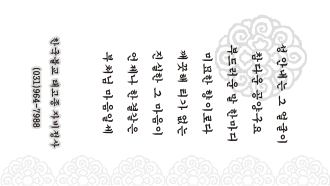 성 안내는 그 얼굴이
참다운 공양구요
부드러운 말 한마디
미묘한 향이로다
깨끗해 티가 없는
진실한 그 마음이
언제나 한결같은
부처님 마음일세
한국불교 태고종 자비정사
(031)964-7988